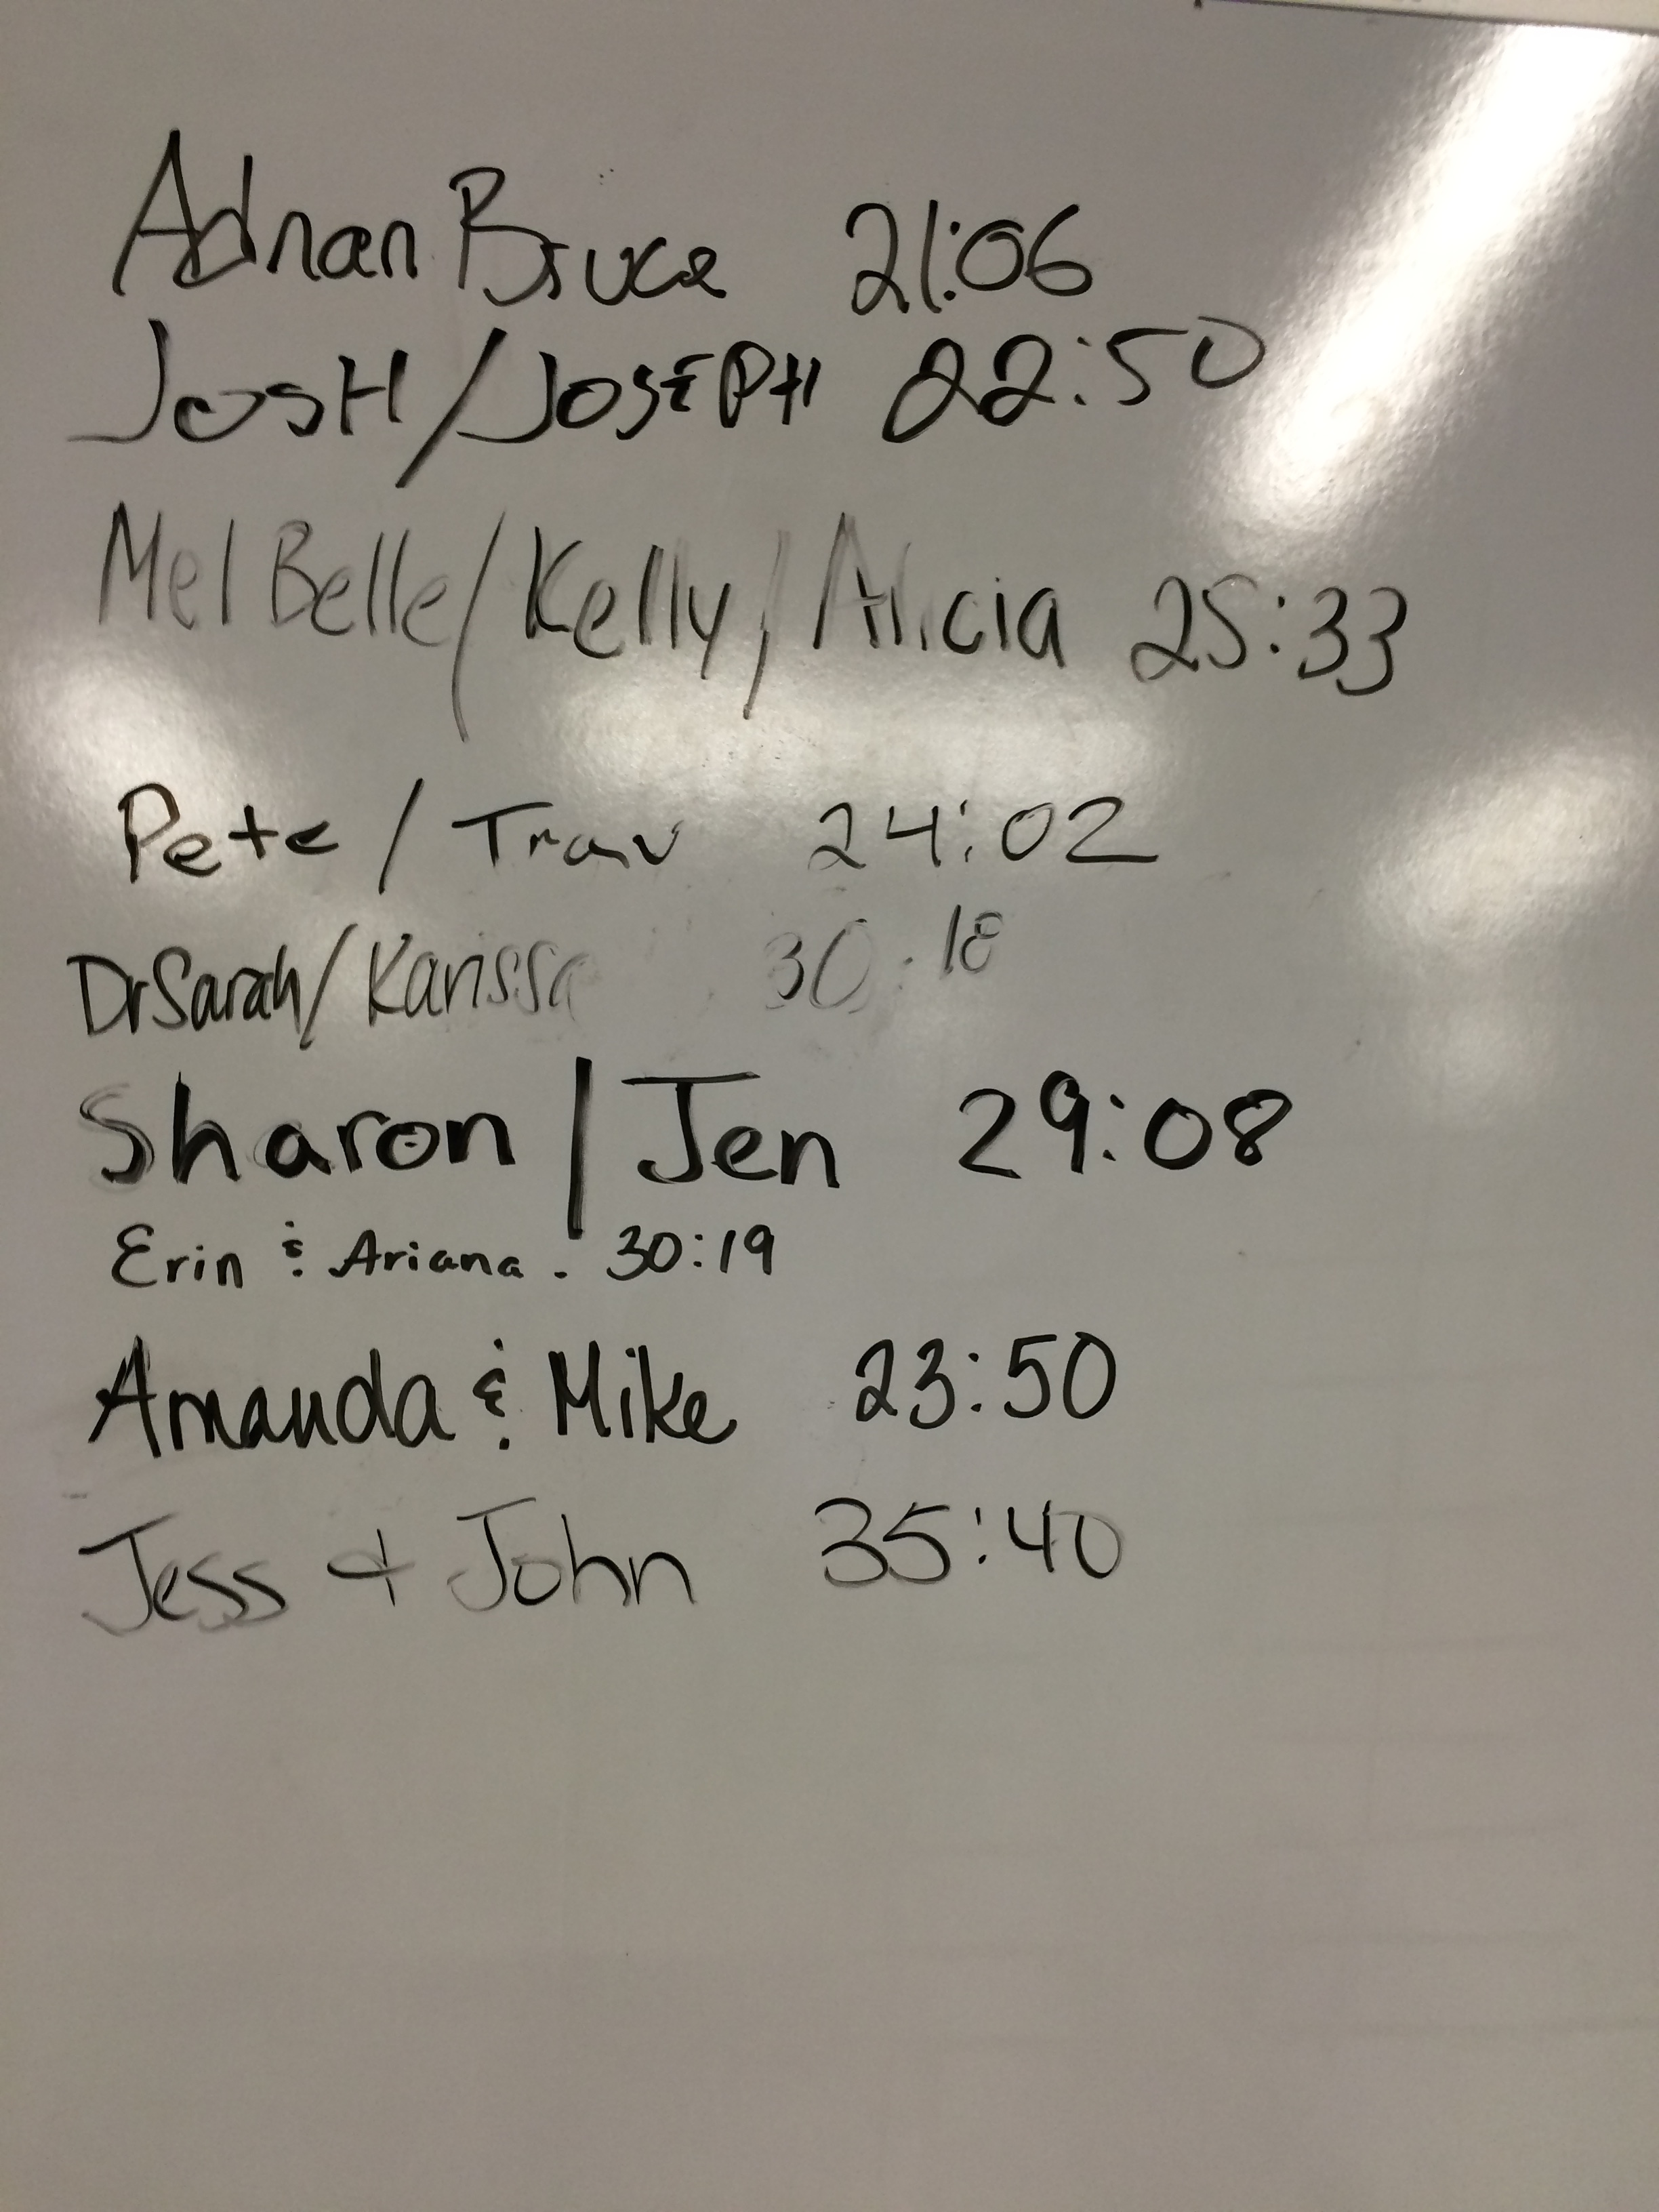 Adnan Bruce 21:06
JOSH/JOSEPH 22:50
Mel Belle/Kelly/Alicia 25:33
Pete / Trav 24:02
Dr Sarah/Karissa 30:18
Sharon | Jen 29:08
Erin & Ariana. 30:19
Amanda & Mike 23:50
Jess + John 35:40